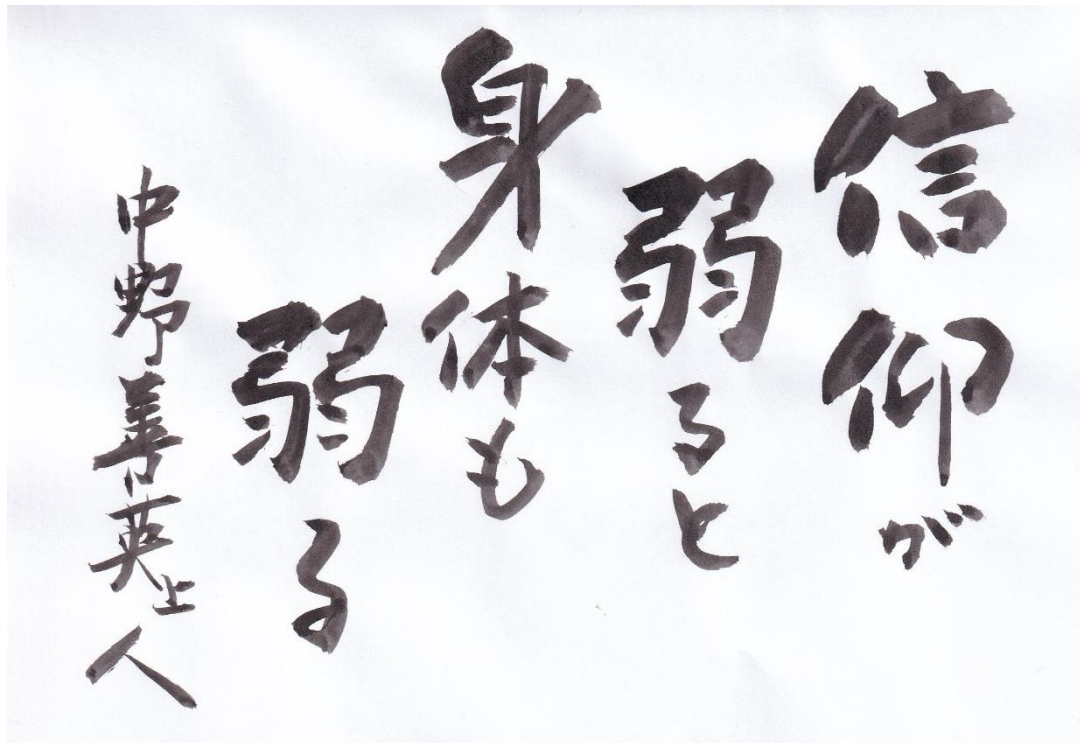 信仰が
弱ると
身体も
弱る
中野善英上人